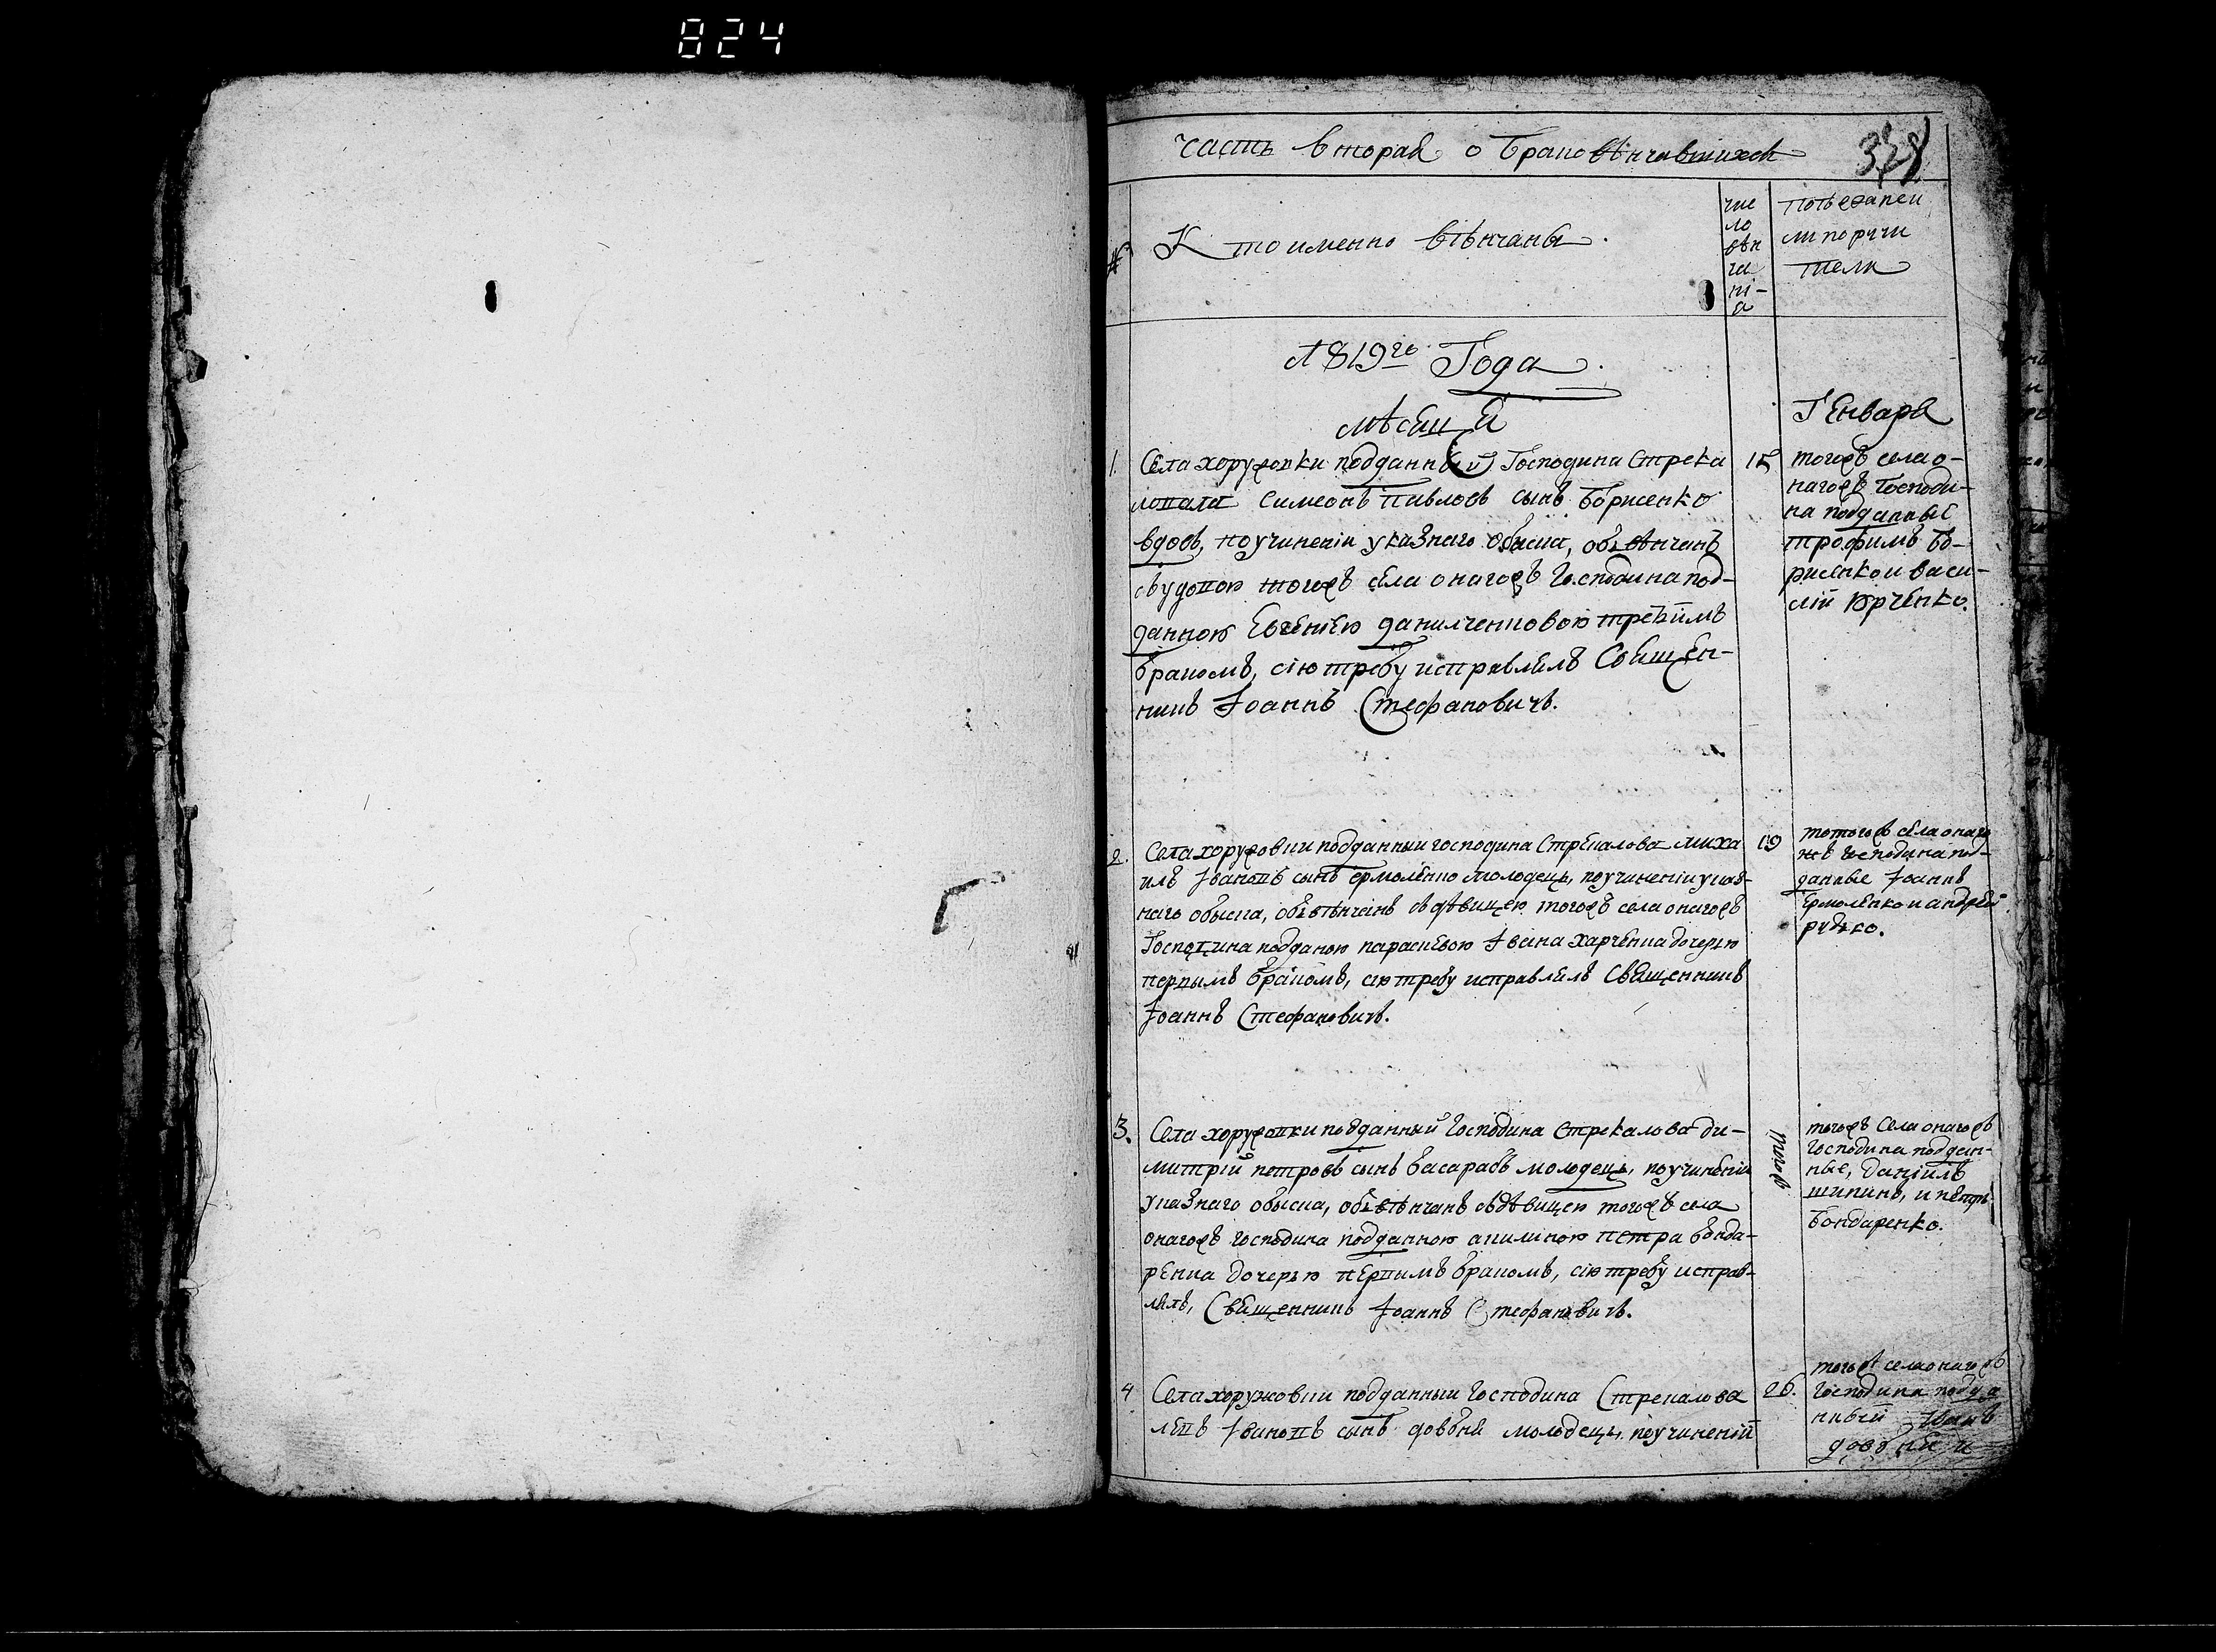 824
часть вторая о бракоѣѣнчавшихся
328
№
Кто именно вѣнчаны.
чис
ло
вѣн
ча
нї-
а
По
ли поручи
тели
1819го Года.
мѣсяц
Генваря
1. Села хоружовки подданный Господина Стрека
лопала Симеонъ Павловъ сынъ Борисенко
вдовъ, поучиненіи указнаго обыска, обвѣнчанъ
съ удовою тогожъ села онагожъ Господина под-
данною Евгениею даниленковою третіимъ
бракомъ, сію требу исправлялъ Священ-
никъ Іоаннъ Стефановичъ.
15
тогожъ села о-
нагожъ Господи-
на подданные
трофимъ Бо-
рисенко и васи-
лій Юрченко.
2. Села хоружовки подданныи господина Стрекалова миха
илъ Івановъ сынъ ермоленко молодецъ, поучиненіи указ-
наго обыска, обвѣнчанъ съ дѣвицею тогожъ села онагожъ
Господина подданою параскевою Івана харченка дочерью
первымъ бракомъ, сію требу исправлялъ Священникъ
Іоаннъ Стефановичъ.
19
тогожъ села онаго
жъ Господина под-
данные Іоаннъ
Ермоленко и андрей
рудко.
3. Села хоружовки подданный Господина Стрекалова ди-
митрій петровъ сынъ басарабъ молодецъ, поучиненіи
указнаго обыска, обвѣнчанъ съ дѣвицею тогожъ села
онагожъ господина подданною акилиною петра бонда-
ренка дочерью первымъ бракомъ, сію требу исправ-
лялъ, Священникъ Іоаннъ Стефановичъ.
тогожъ
тогожъ Села онагожъ
Господина поддан-
ные, Даніилъ
шикинъ, и петръ
Бондаренко.
4 Села хоружовки подданныи Господина Стрекалова
левъ Івановъ сынъ довбня молодецъ, поучиненіи
26.
тогожъ села онагожъ
Господина подда
нный Иванъ
довбня и